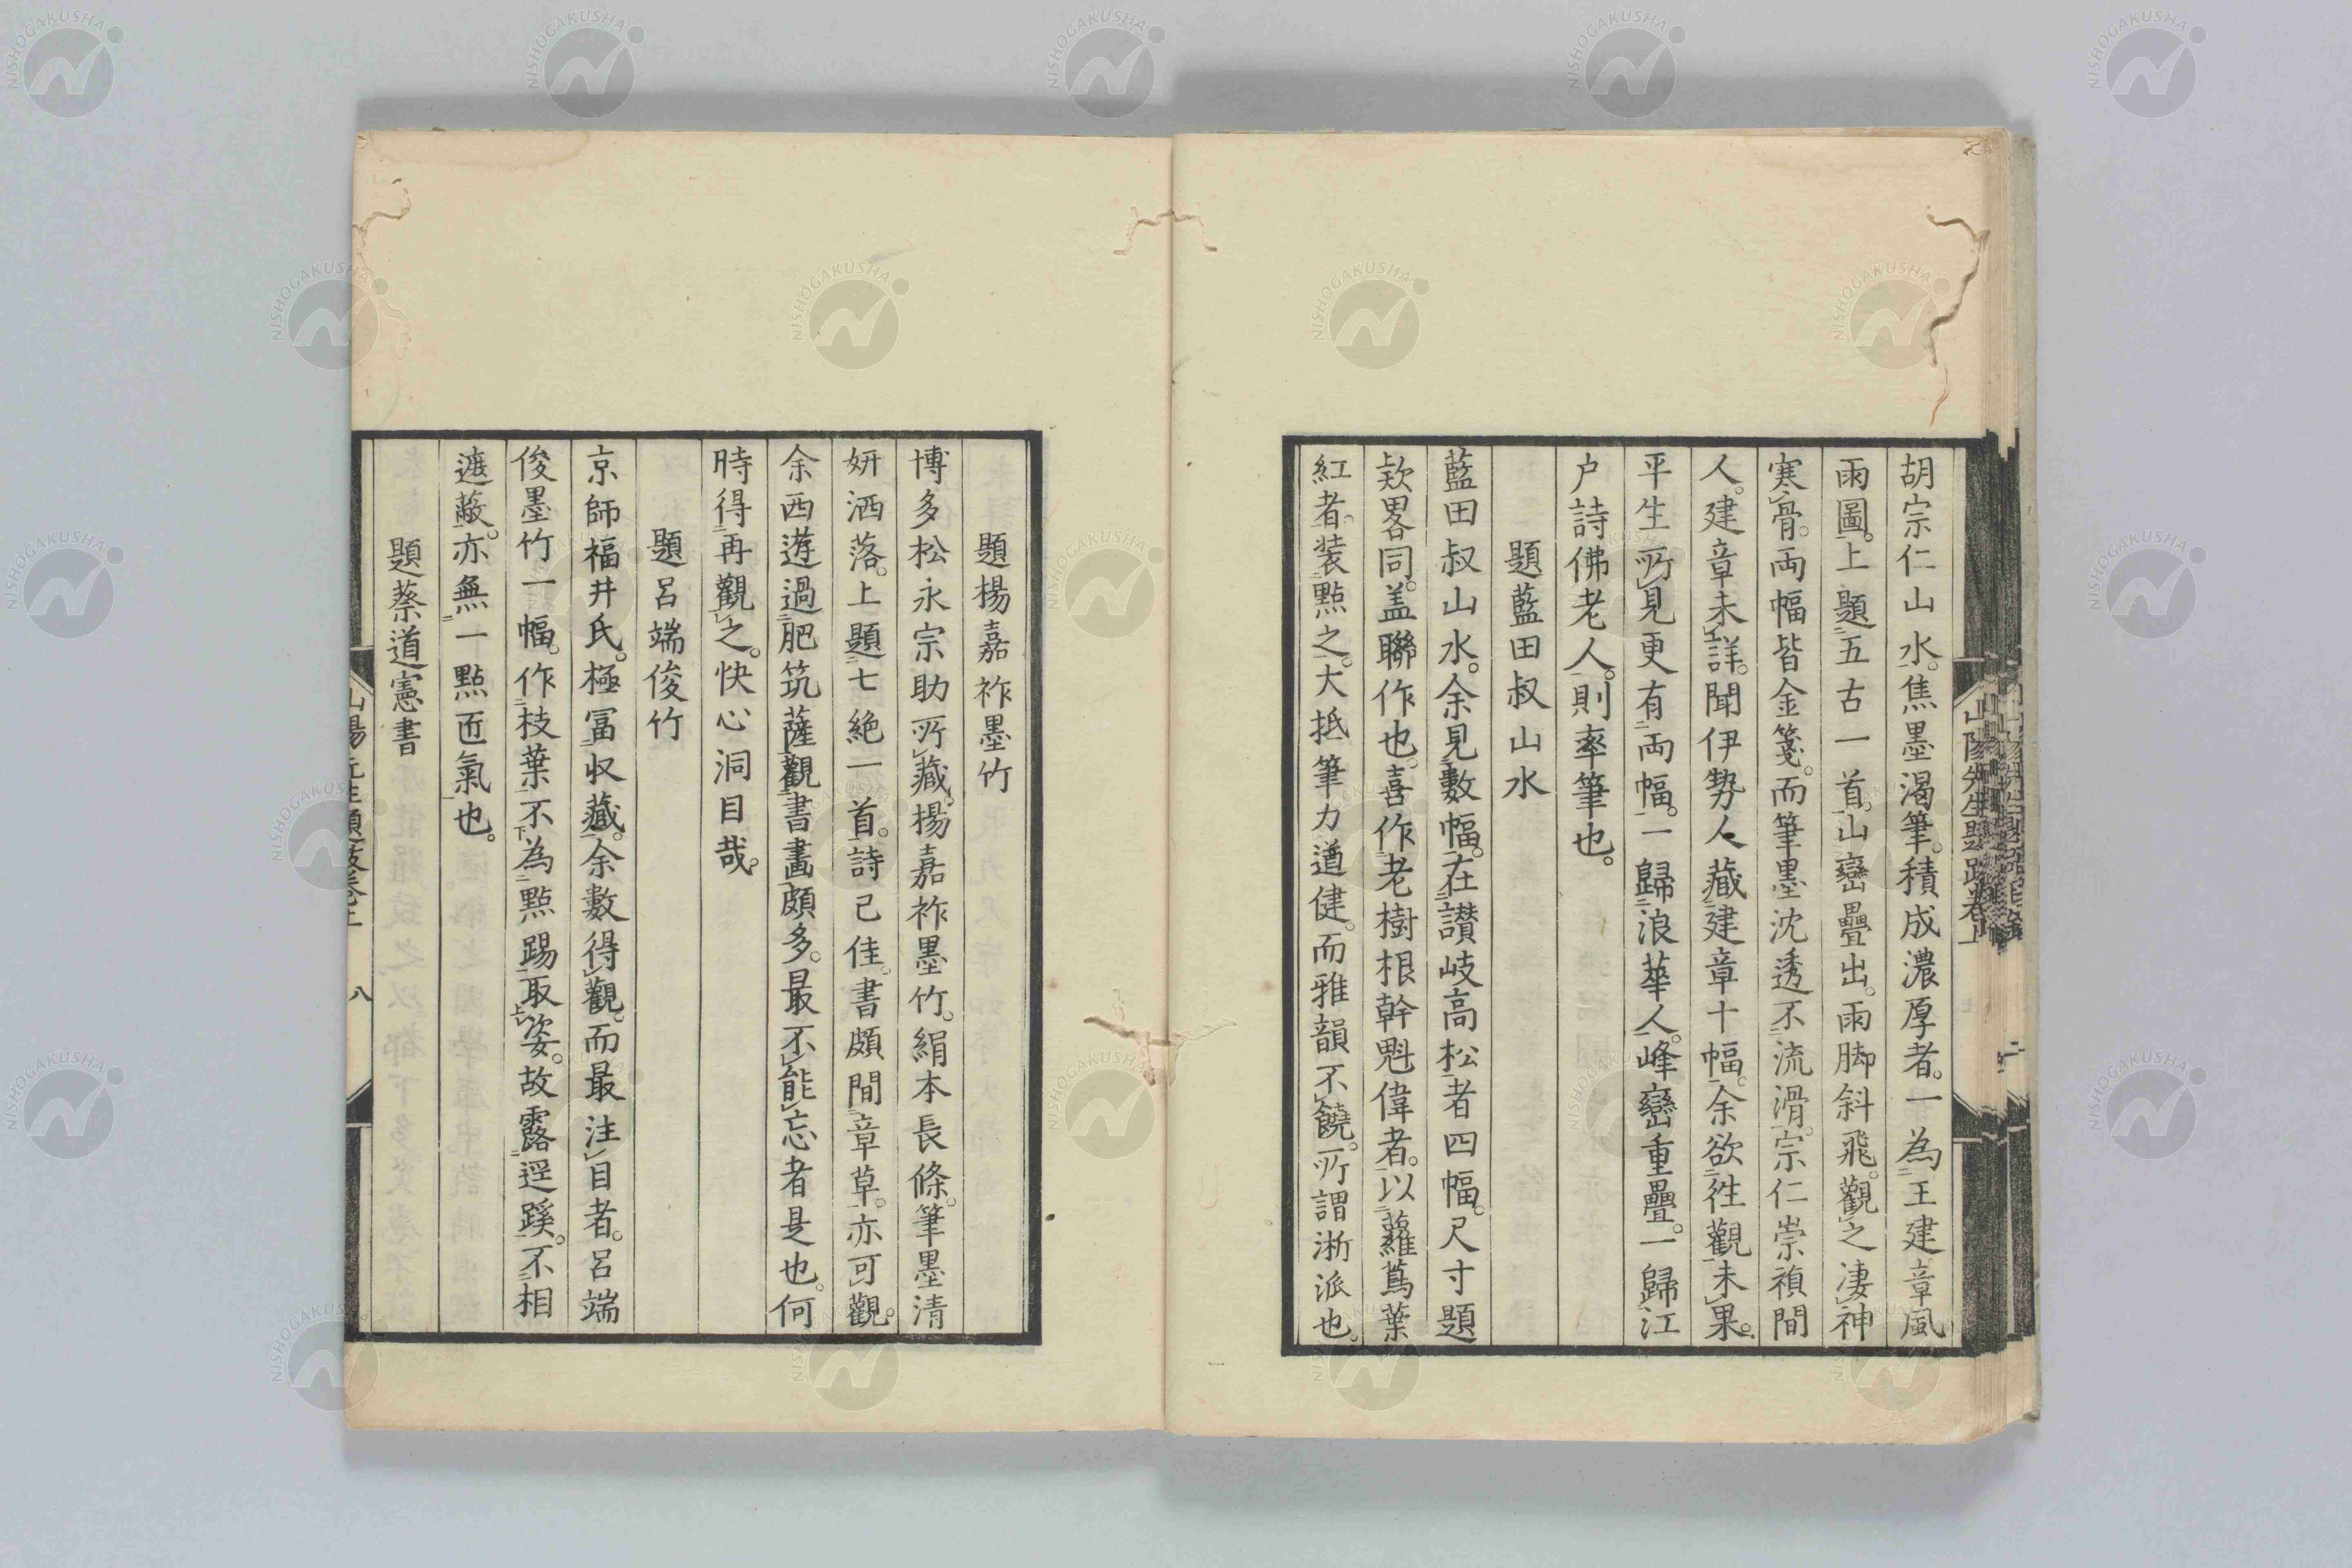 胡宗仁山水。焦墨渴筆。積成濃厚者。一為王建章風
雨圖。上題五古一首。山巒疊出。雨脚斜飛。觀之凄神
寒骨。両幅皆金箋。而筆墨沈透不流滑。宗仁崇禎間
人。建章未詳。聞伊勢人藏建章十幅。余欲徃觀未果。
平生所見更有両幅。一歸浪華人。峰巒重疊。一歸江
户詩佛老人。則率筆也。
題藍田叔山水
藍田叔山水。余見數幅。在讃岐高松者四幅。尺寸題
欵畧同。盖聯作也。喜作老樹根幹魁偉者。以蘿蔦葉
紅者。装點之。大抵筆力遒健。而雅韻不饒。所謂淅派也。
山陽先生題跋卷上
題楊嘉祚墨竹
博多松永宗助所藏。楊嘉祚墨竹。絹本長條。筆墨清
妍洒落。上題七絶一首。詩已佳。書頗間章草。亦可觀。
余西遊過肥筑薩觀書畫頗多。最不能忘者是也。何
時得再觀之。快心洞目哉。
題呂端俊竹
京師福井氏。極冨収藏。余數得觀。而最注目者。呂端
俊墨竹一幅。作枝葉不為點踢取姿。故露逕蹊。不相
遮蔽。亦無一點匠氣也。
題蔡道憲書
山陽先生題跋卷上 八